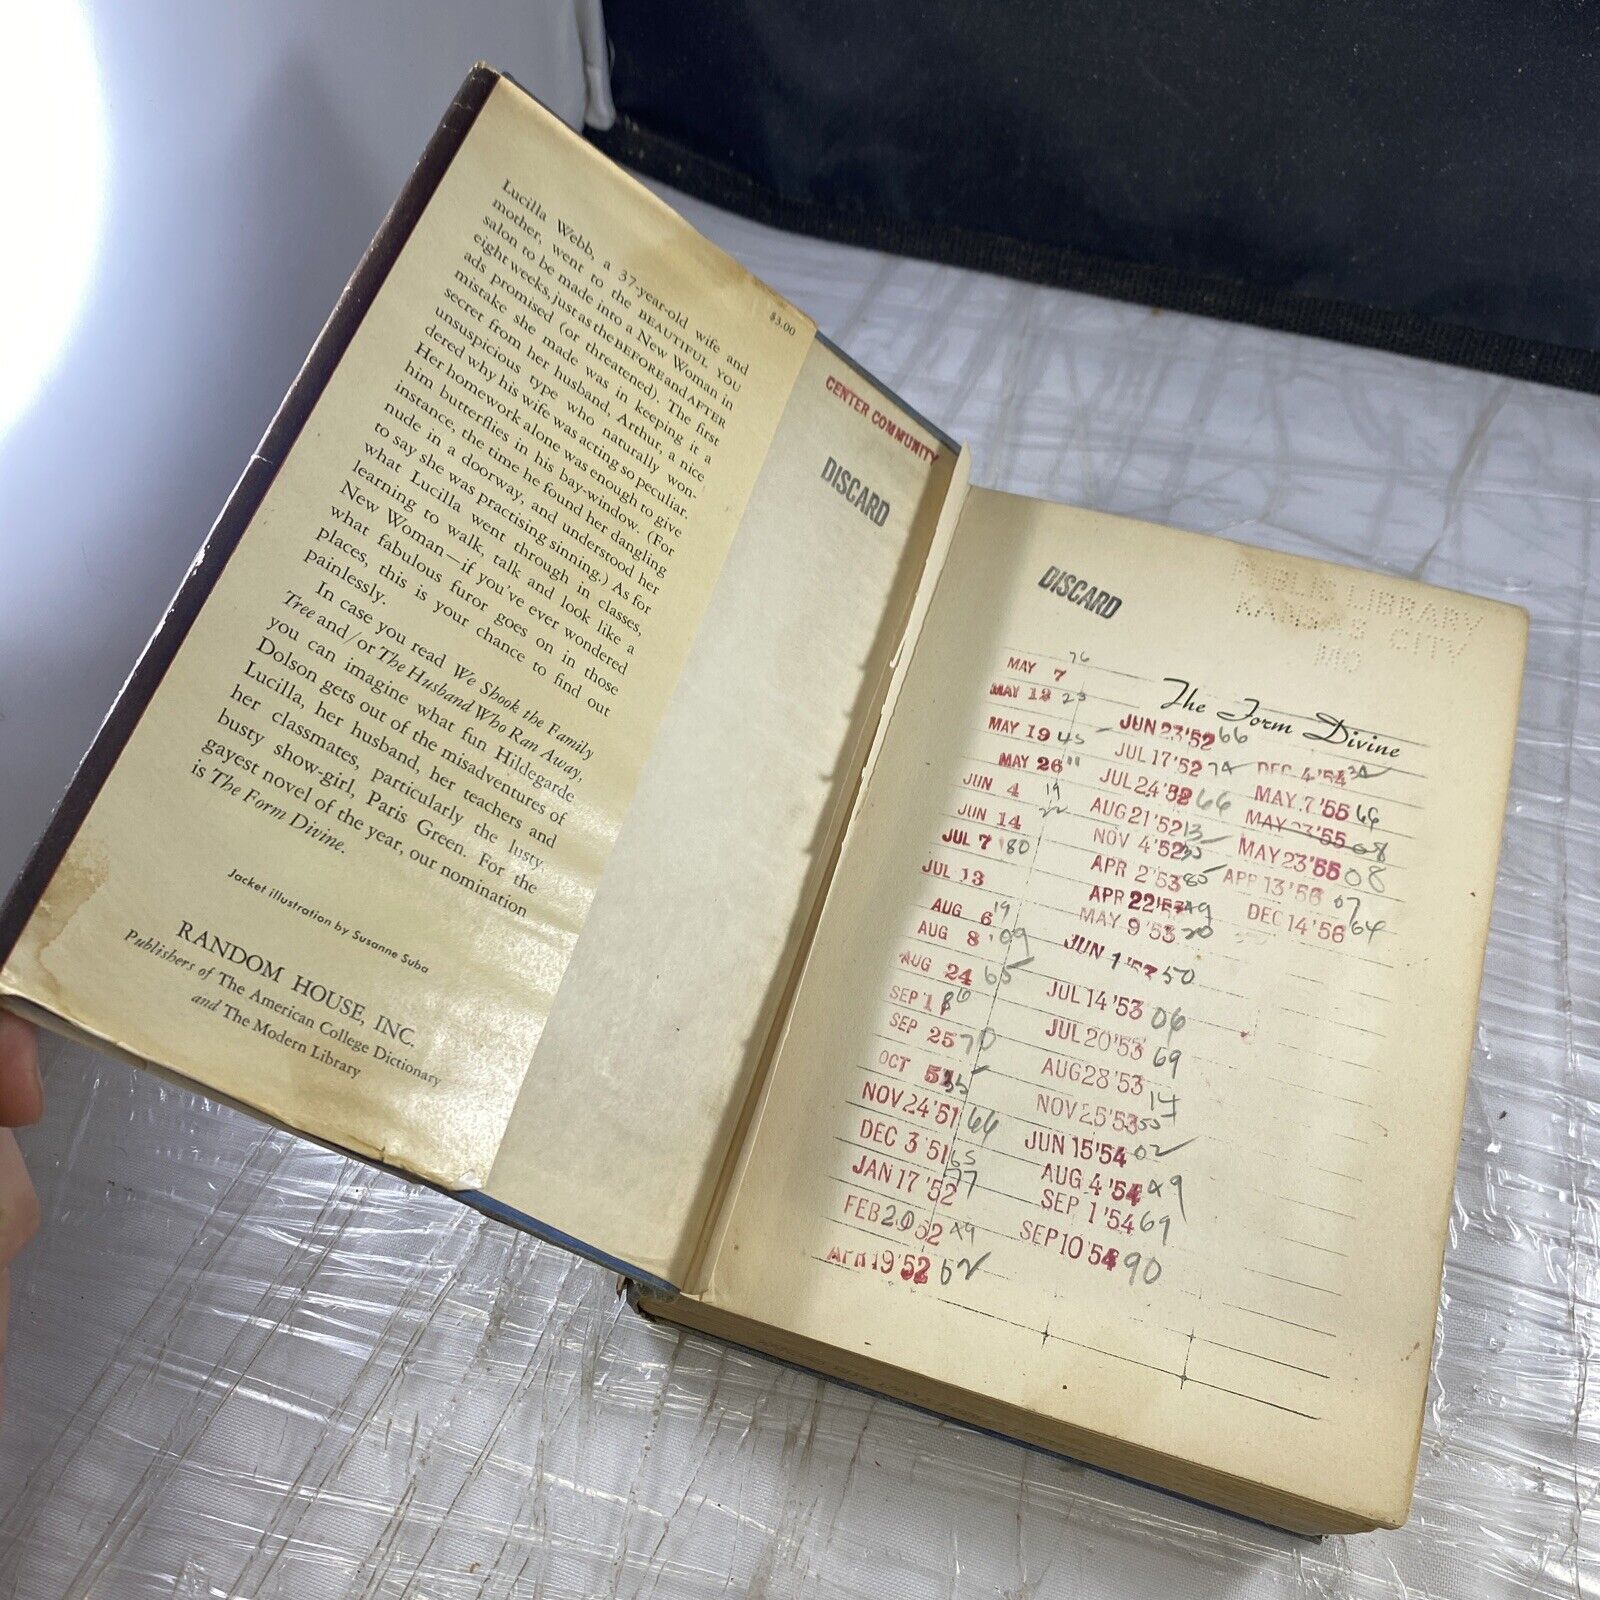 $3.00
Lucilla Webb, a 37-year-old wife and
mother, went to the BEAUTIFUL YOU
salon to be made into a New Woman in
eight weeks, just as the BEFORE and AFTER
ads promised (or threatened). The first
mistake she made was in keeping it a
secret from her husband, Arthur, a nice
unsuspicious type who naturally won-
dered why his wife was acting so peculiar.
Her homework alone was enough to give
him butterflies in his bay-window. (For
instance, the time he found her dangling
nude in a doorway, and understood her
to say she was practising sinning.) As for
what Lucilla went through in classes,
learning to walk, talk and look like a
New Woman—if you've ever wondered
what fabulous furor goes on in those
places, this is your chance to find out
painlessly.
In case you read We Shook the Family
Tree and/or The Husband Who Ran Away,
you can imagine what fun Hildegarde
Dolson gets out of the misadventures of
Lucilla, her husband, her teachers and
her classmates, particularly the lusty,
busty show-girl, Paris Green. For the
gayest novel of the year, our nomination
is The Form Divine.
Jacket illustration by Susanne Suba
RANDOM HOUSE, INC.
Publishers of The American College Dictionary
and The Modern Library
CENTER COMMUNITY
DISCARD
DISCARD
PUBLIC LIBRARY
KANSAS CITY
MO
The Form Divine
MAY 7 76
MAY 12 23
MAY 19 45
MAY 26 11
JUN 4 19
JUN 14 22
JUL 7 80
JUL 13
AUG 6 19
AUG 8 09
AUG 24 65
SEP
SEP 25 70
OCT 5
NOV 24 '51 66
DEC 3 '51 65
JAN 17 '52 77
FEB 20 52 49
APR 19 '52 62
JUN 23 '52 66
JUL 17 '52 74
JUL 24 '52 66
AUG 21 '52 13
NOV 4 '52
APR 2 '53 85
APR 22 49
MAY 9 '53 20
JUN 1 50
JUL 14 '53 06
JUL 20 '53 69
AUG 28 '53 14
NOV 25 '53
JUN 15 '54 02
AUG 4 '54 29
SEP 1 '54 69
SEP 10 '54 90
DEC 4 '54
MAY 7 '55 66
MAY '55 08
MAY 23 '55 08
APR 13 '56 07
DEC 14 '56 64